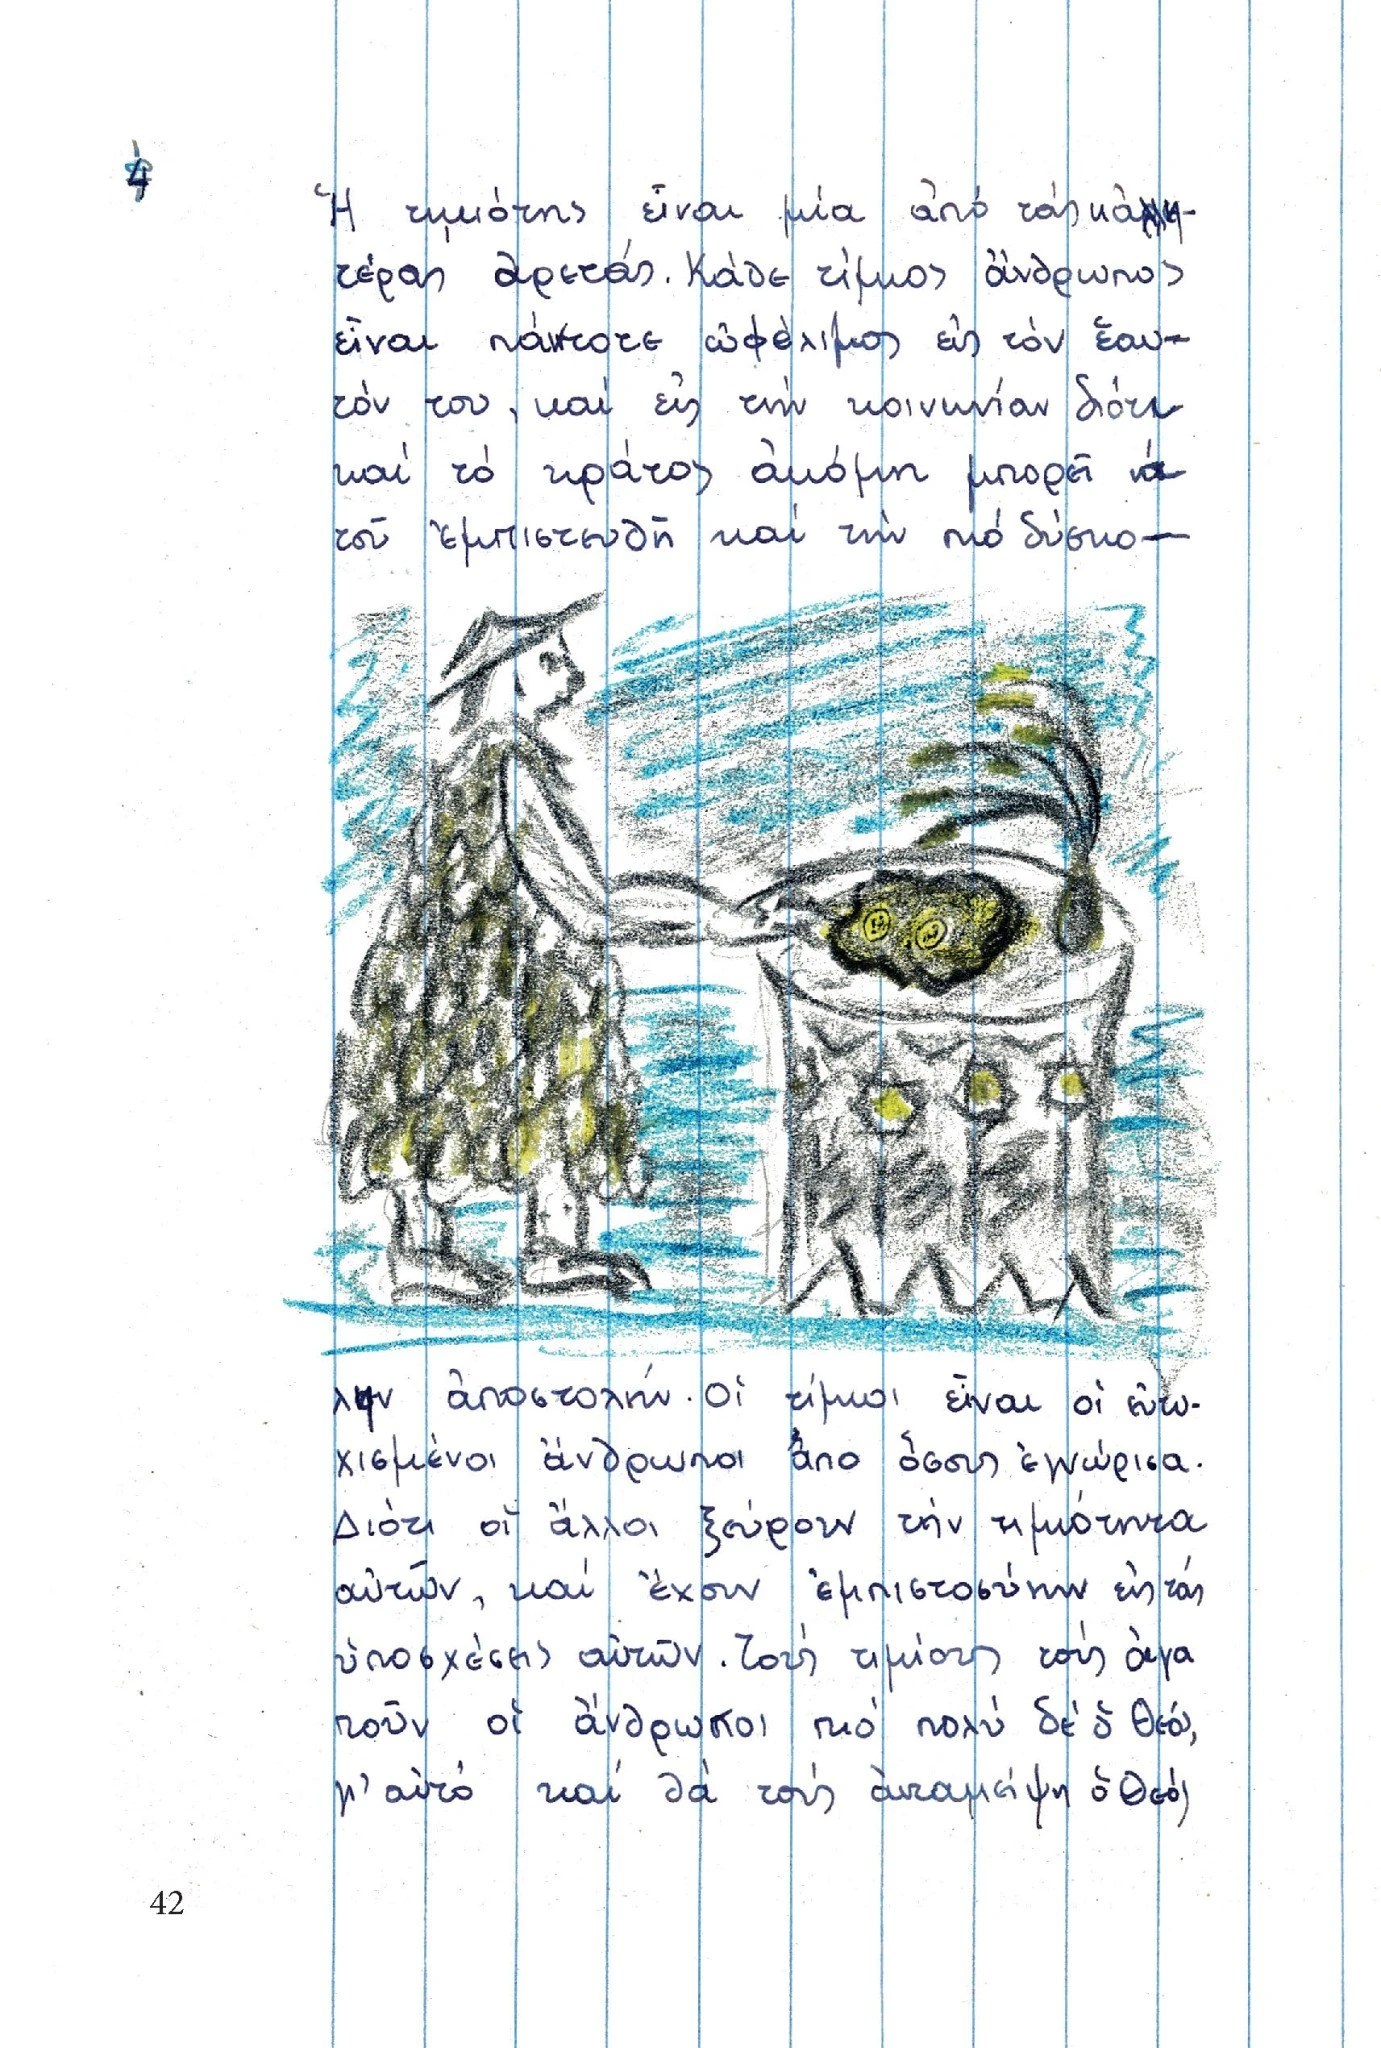 4
Ἡ τιμιότης εἶναι μία ἀπό τάς καλλη-
τέρας ἀρετάς. Κάθε τίμιος ἄνθρωπος
εἶναι πάντοτε ὠφέλιμος εἰς τόν ἑαυ-
τόν του, καί εἰς τήν κοινωνίαν διότι
καί τό κράτος ἀκόμη μπορεῖ νά
τοῦ ἐμπιστευθῆ καί τήν πιό δύσκο-
λην ἀποστολήν. Οἱ τίμιοι εἶναι οἱ εὐτυ-
χισμένοι ἄνθρωποι ἀπο ὅσους ἐγνώρισα.
Διότι οἱ ἄλλοι ξεύρουν τήν τιμιότητα
αὐτῶν, καί ἔχουν ἐμπιστοσύνην εἰς τάς
ὑποσχέσεις αὐτῶν. Τούς τιμίους τούς ἀγα
ποῦν οἱ ἄνθρωποι πιό πολύ δέ ὁ Θεός,
γι' αὐτό καί θά τούς ἀνταμείψη ὁ Θεός
42